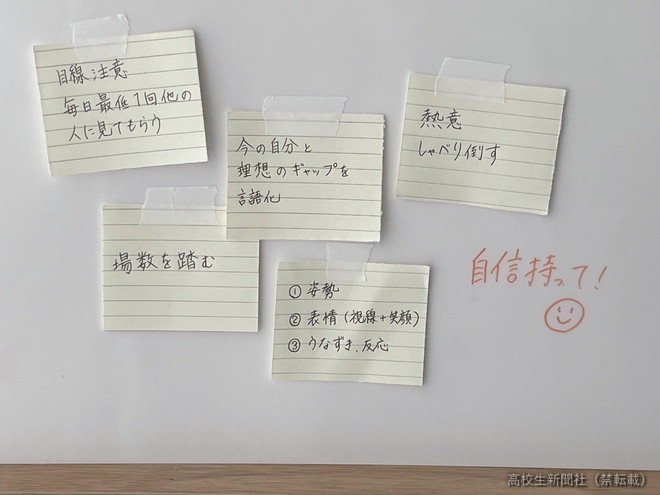 目線注意
毎日最低1回他の
人に見てもらう
今の自分と
理想のギャップを
言語化
熱意
しゃべり倒す
場数を踏む
① 姿勢
② 表情(視線+笑顔)
③ うなずき、反応
自信持って!
高校生新聞社(禁転載)